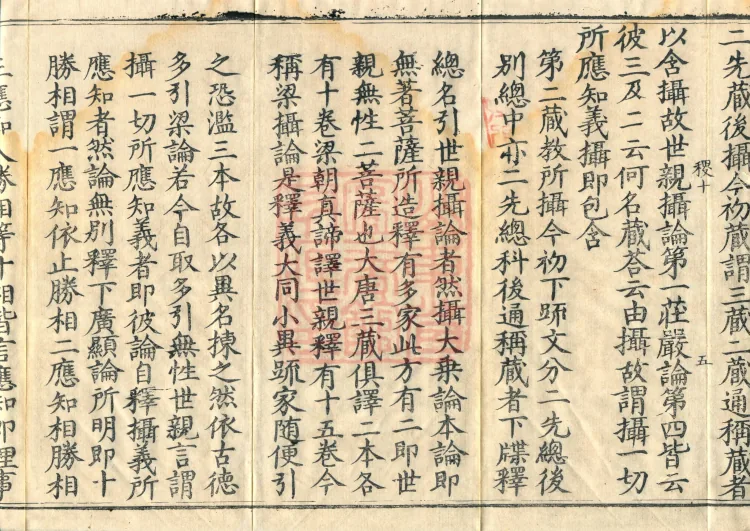 二先蔵後攝今初蔵謂三蔵二蔵通稱蔵者
稷十
五
以含攝故世親攝論第一莊嚴論第四皆云
彼三及二云何名蔵荅云由攝故謂攝一切
所應知義攝即包含
第二蔵教所攝今初下䟽文分二先總後
別總中亦二先總科後通稱蔵者下牒釋
總名引世親攝論者然攝大乗論本論即
無著菩薩所造釋有多家此方有二即世
親無性二菩薩也大唐三蔵俱譯二本各
有十卷梁朝真諦譯世親釋有十五卷今
稱梁攝論是釋義大同小異䟽家随便引
之恐濫三本故各以異名揀之然依古德
多引梁論若今自取多引無性世親言謂
攝一切所應知義者即彼論自釋攝義所
應知者然論無別釋下廣顯論所明即十
勝相謂一應知依止勝相二應知相勝相
三應知入勝相等十相皆言應知即理事